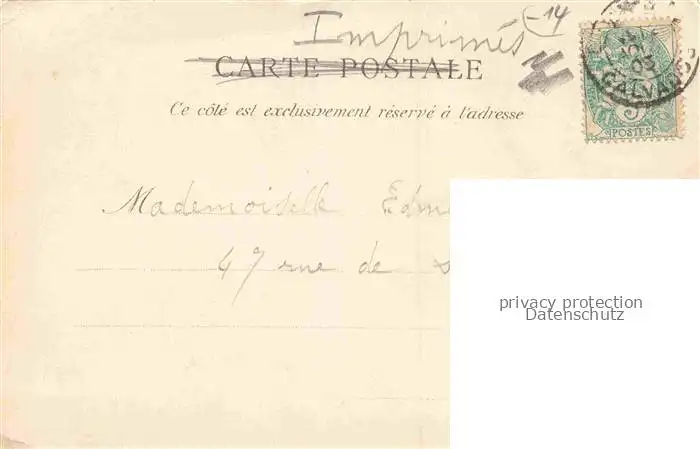 Imprimés
CARTE POSTALE
Ce côté est exclusivement réservé à l'adresse
5
POSTES
CALVADOS
03
Mademoiselle
47 rue de
privacy protection
Datenschutz